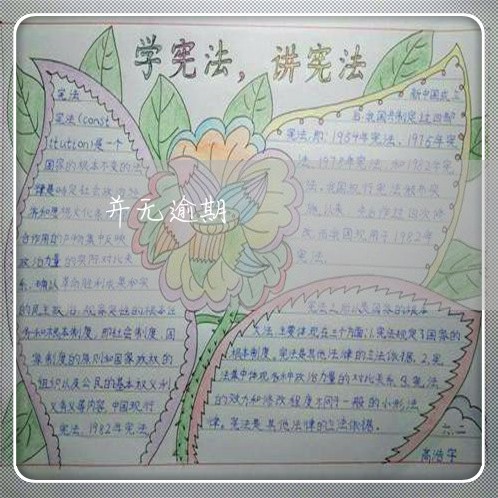 学宪法，讲宪法
宪法
宪法(const
itution)是一个
国家的根本不变的法
律是特定社会政治
并无逾期
合作用的产物集中反映
政治力量的实际对比关
系，确认革命胜利成果和实
的民主政治，规定国家的根本任
务和根本制度，即社会制度、国
家制度的原则和国家政权的
组织以及公民的基本权义利
义务等内容，中国现行
宪法，1982年宪法
新中国成立
后，我国共制定过四部
宪法，即：1954年宪法、1975年宪
法、1978年宪法，和1982年宪
法，我国现行宪法颁布实
施，以来，先后作过四次修
改，而我国现用于1982年
宪法。
宪法之所以是国家的根本
大法，主要体现在三个方面：1.宪法规定了国家的
根本制度，宪法是其他法律的立法依据。2.宪
法集中体现各种政治力量的对比关系。3.宪法
的效力和修改程度不同于一般的小形法
律，宪法是其他法律的立法依据。
六.二
高浩宇